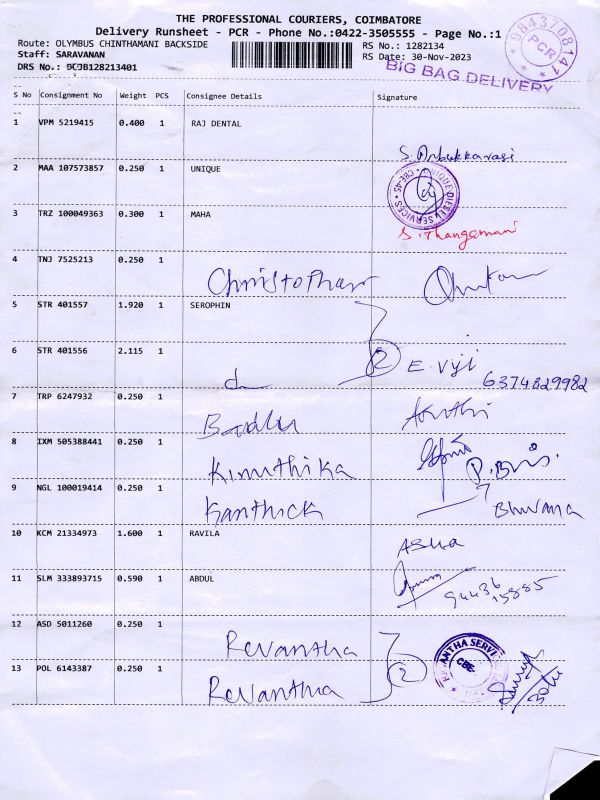 THE PROFESSIONAL COURIERS, COIMBATORE
Delivery Runsheet - PCR - Phone No.:0422-3505555 - Page No.:1
Route: OLYMBUS CHINTHAMANI BACKSIDE RS No.: 1282134
Staff: SARAVANAN RS Date: 30-Nov-2023
DRS No.: DCJB128213401
BIG BAG DELIVERY
* 9843708141 *
PCR
S No Consignment No Weight PCS Consignee Details Signature
1 VPM 5219415 0.400 1 RAJ DENTAL
S. Anbukkarasi
2 MAA 107573857 0.250 1 UNIQUE
UNIQUE DIESEL SERVICES * CBE-45 *
3 TRZ 100049363 0.300 1 MAHA
S. Thangamani
4 TNJ 7525213 0.250 1
Christopher
5 STR 401557 1.920 1 SEROPHIN
2
6 STR 401556 2.115 1
do E. Viji
6374829982
7 TRP 6247932 0.250 1
8 IXM 505388441 0.250 1
Kiruthika
9 NGL 100019414 0.250 1
Karthick Bhuvana
10 KCM 21334973 1.600 1 RAVILA
Asha
11 SLM 333893715 0.590 1 ABDUL
94436
15885
12 ASD 5011260 0.250 1
Revantha
REVANTHA SERVI
CBE
2
13 POL 6143387 0.250 1
Revantha